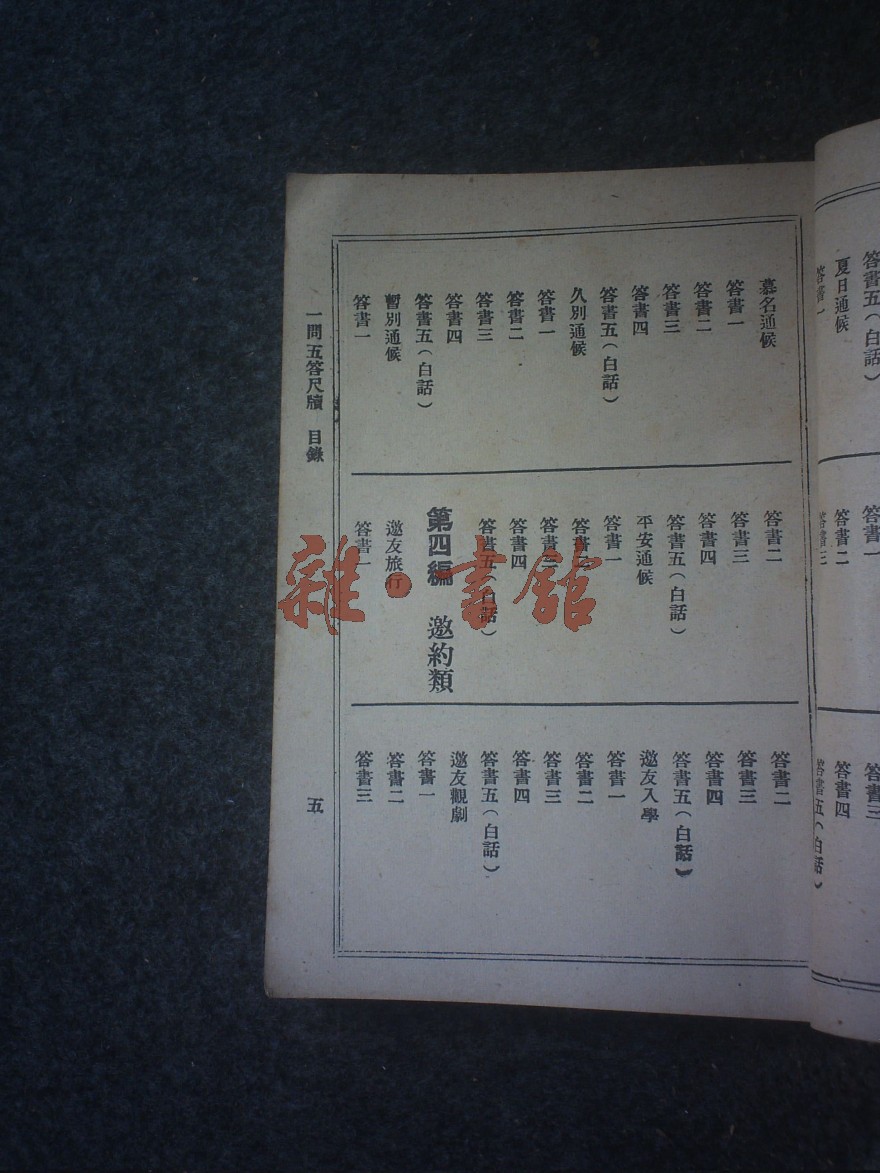 答書五（白話）
夏日通候
答書一
答書一
答書二
答書三
答書三
答書四
答書五（白話）
慕名通候
答書一
答書二
答書三
答書四
答書五（白話）
久別通候
答書一
答書二
答書三
答書四
答書五（白話）
暫別通候
答書一
答書二
答書三
答書四
答書五（白話）
平安通候
答書一
答書二
答書三
答書四
答書五（白話）
第四編　邀約類
邀友旅行
答書一
答書二
答書三
答書四
答書五（白話）
邀友入學
答書一
答書二
答書三
答書四
答書五（白話）
邀友觀劇
答書一
答書二
答書三
一問五答尺牘　目錄
五
雜·書館